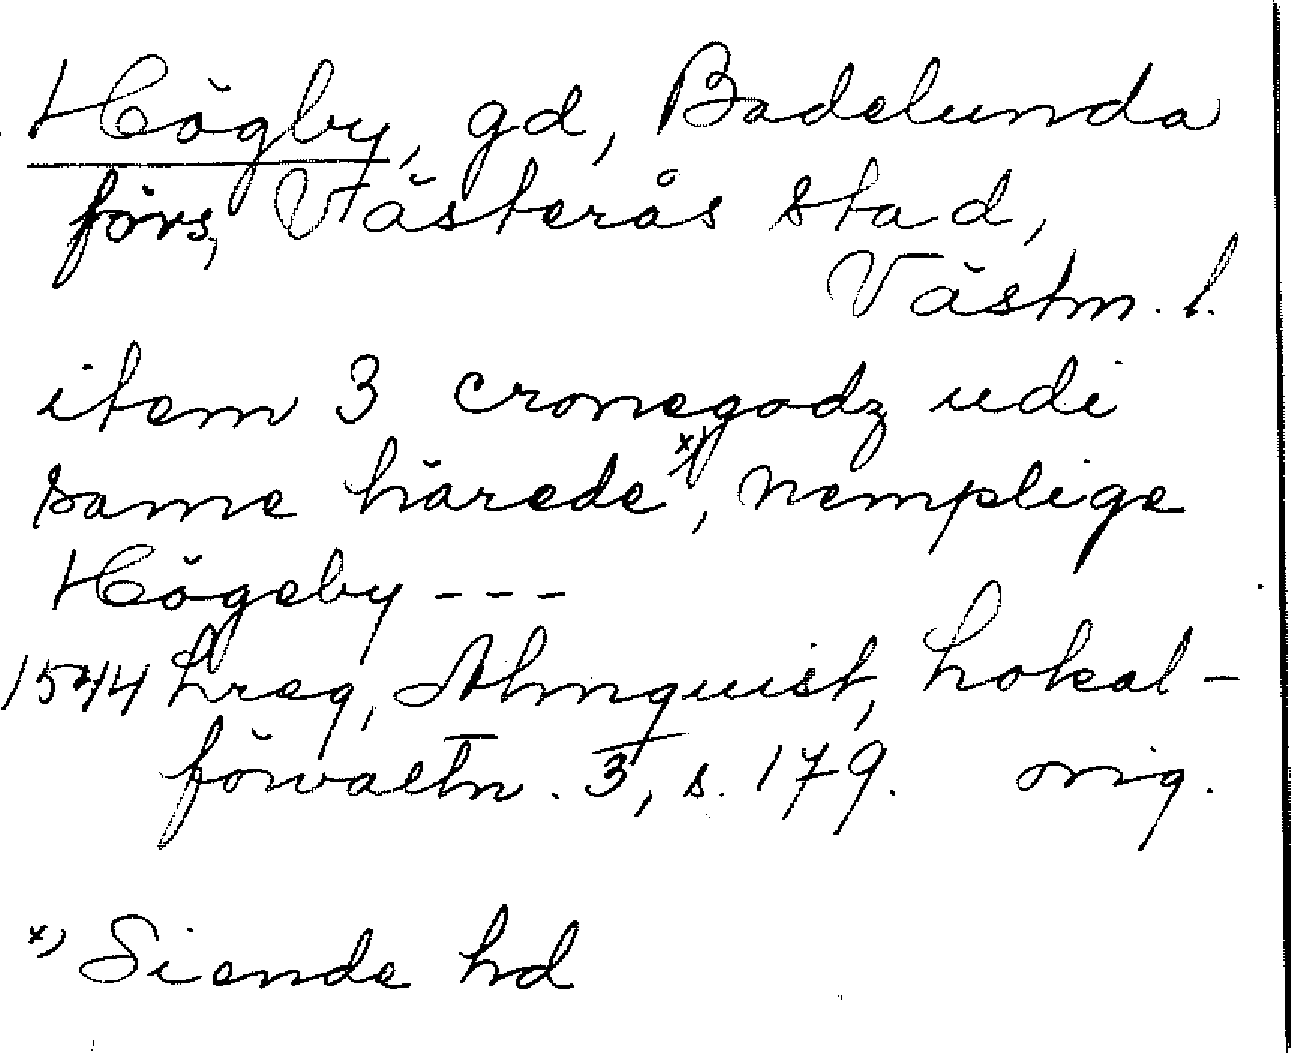 Högby, gd, Badelunda
förs, Västerås stad,
Västm. l.
item 3 cronegodz udi
same härede x), nemplige
Högeby ---
1544 Lreg, Almquist, Lokal-
förvaltn. 3, s. 179. orig.
x) Siende hd